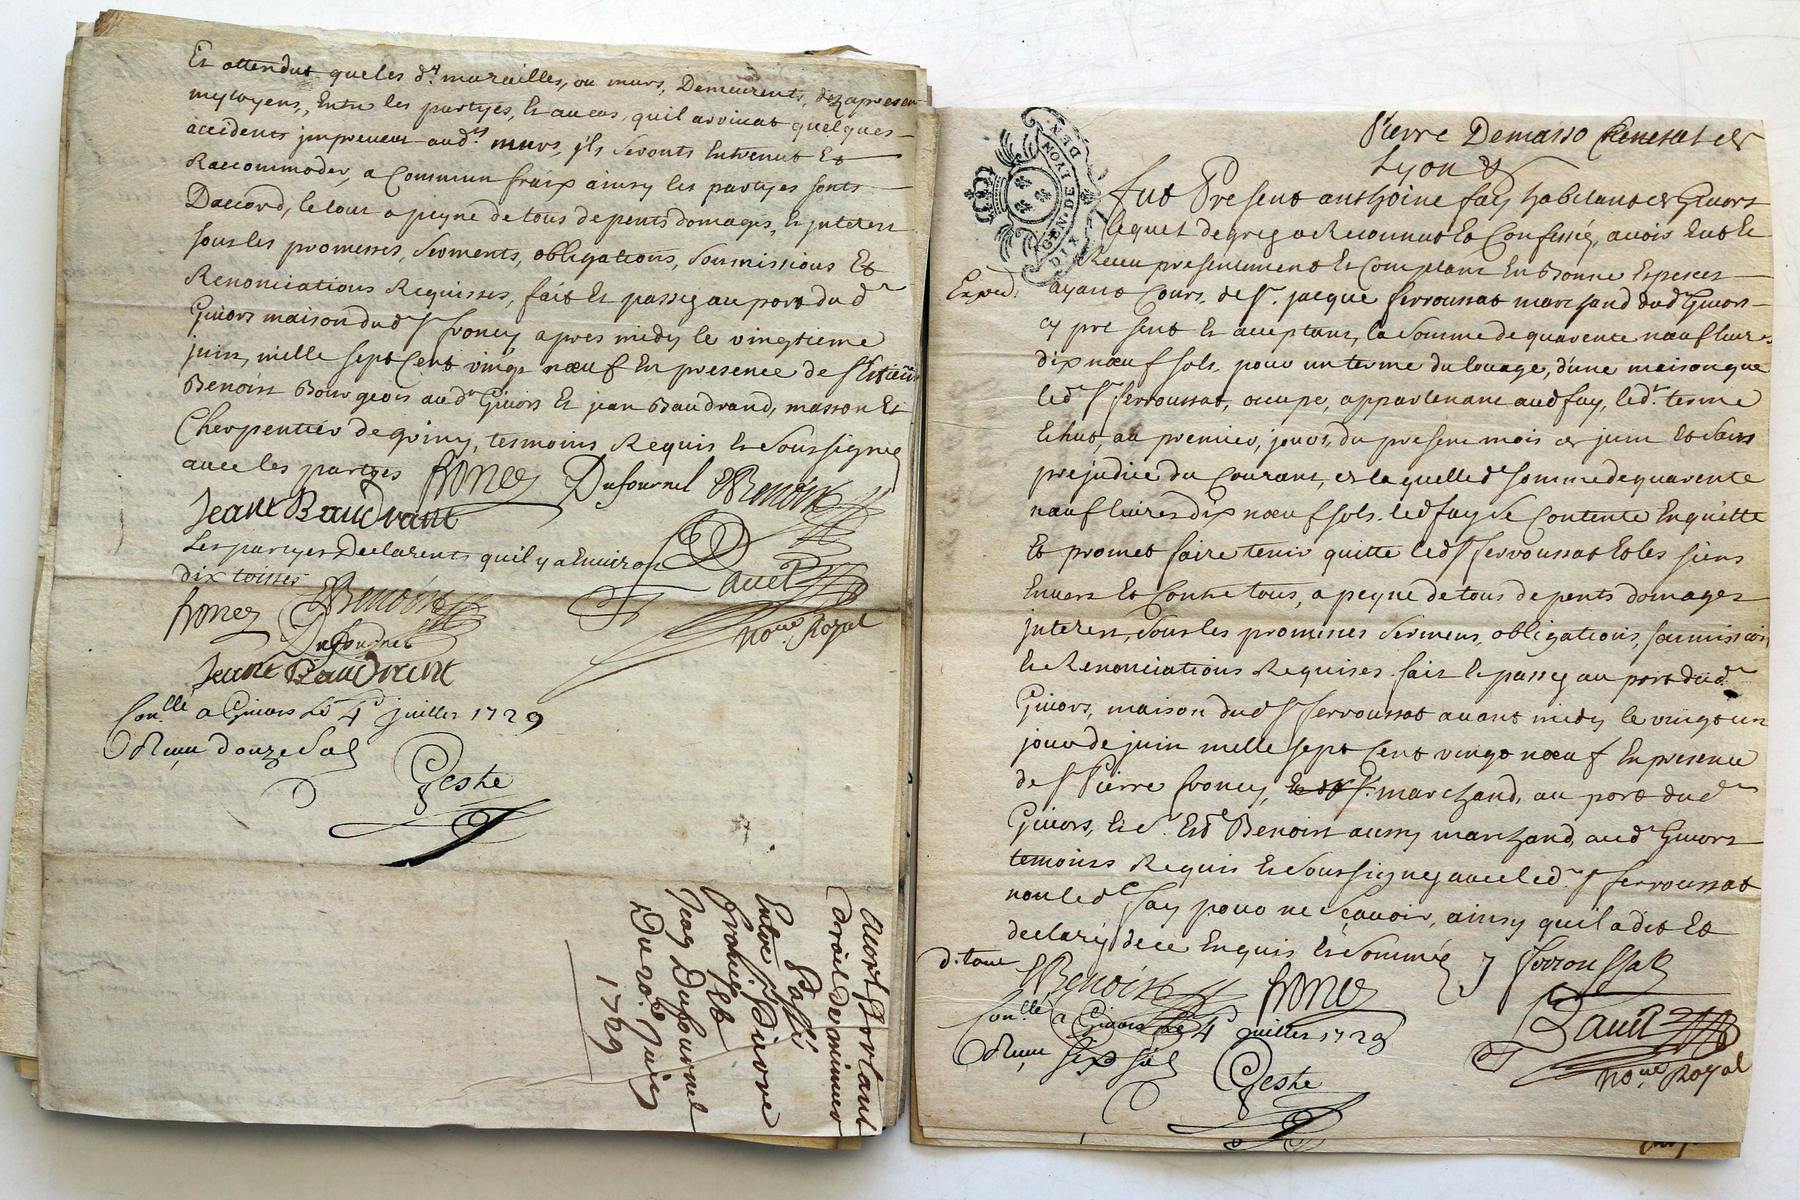 Et attendut queles d.ts murailles, ou murs, Demeurents, dez apresen
mytoyens, Entre les partyes, Et au cas, quil arrivat quelques
accidents jmpreveus aud.ts murs, jls seronts Entrenut Et
Raccommoder, a Commun fraix ainsy les partyes sonts
Daccord, le tout a peyne de tous depents domages, Et jnterest
sous les promesses, serments, obligations, soumissions Et
Renonciations Requisses, fait Et passey au port dud.r
Givors maison dud.r Sr froncy apres midy le vingtieme
juin, mille sept Cent vingt nœuf En presence de Sr Estienne
Benoist Bourgeois aud.r Givors Et jean Baudrand, masson Et
Cherpentier de griny, tesmoins Requis Et soussignes
avec les partyes froncy Dufournel EBenoist
Jeant Baudrant
Les partyes Declarents quil y a Environ
dix toisses
froncy EBenoist
Dufournel
Jeant Baudrant
no.re Royal
Con.llé a Givors Le 4e juillet 1729
Reçu douze sols
Geste
Entre Sr Pierre
froncy Et
Jean Dufournel
Du 20e Juin
1729
GEN. DE LYON
DIX DEN
Pierre Demasso
Lyon &
fut Present anthoine fay habitant de Givors
lequel de grez a Reconnut Et Confessé, avoir Eut Et
Receu presentement Et Comptant En Bonne Especes
Exped.
ayant Cours, de Sr. jacque ferroussat marchand dud.r Givors
cy present Et acceptant, la somme de quarente nœuf livres
dix nœuf sols, pour un terme du louage, d'une maison que
led.t Sr ferroussat, occupe, appartenant aud fay, led.t terme
Echut, au premier, jour, du present mois de juin Et sans
prejudice du Courant, de la quelle d.e somme de quarente
nœuf livres dix nœuf sols. led fay se Contente En quitte
Et promet faire tenir quitte led Sr ferroussat Et les siens
Envers Et Contre tous, a peyne de tous depents domages
jnterest, sous les promesses serments, obligations, soumissions
Et Renonciations Requises fait Et passey au port dud.r
Givors, maison dud Sr ferroussat avant midy le vingt un
jour de juin mille sept Cent vingt nœuf En presence
de Sr Pierre froncy, marchand, au port dud.r
Givors, Et Sr. Est.e Benoist aussy marchand, aud.r Givors
temoins Requis Et soussigney avec led.t Sr ferroussat
non led.t fay pour ne sçavoir, ainsy quil a dit Et
declaré de ce Enquis Et sommé J ferroussat
EBenoist froncy
Con.llé a Givors Le 4e juillet 1729
Reçu six sols
Geste
no.re Royal